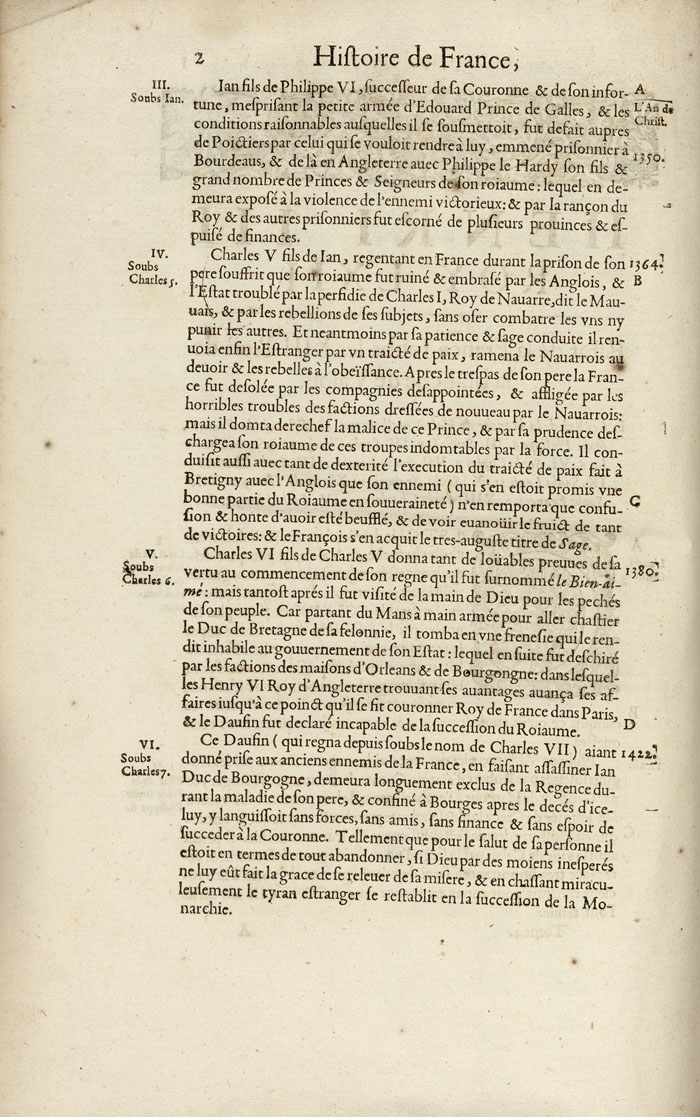 2
Hiſtoire de France,
III.
Soubs Ian.
Ian fils de Philippe VI, ſucceſſeur de ſa Couronne & de ſon infor-
tune, meſpriſant la petite armée d'Edouard Prince de Galles, & les
conditions raiſonnables auſquelles il ſe ſouſmettoit, fut defait aupres
de Poictiers par celui qui ſe vouloit rendre à luy, emmené priſonnier à
Bourdeaus, & de là en Angleterre auec Philippe le Hardy ſon fils &
grand nombre de Princes & Seigneurs de ſon roiaume: lequel en de-
meura expoſé à la violence de l'ennemi victorieux: & par la rançon du
Roy & des autres priſonniers fut eſcorné de pluſieurs prouinces & eſ-
puiſé de finances.
A
L'An de
Chriſt.
1350.
IV.
Soubs
Charles 5.
Charles V fils de Ian, regentant en France durant la priſon de ſon
pere ſouffrit que ſon roiaume fut ruiné & embraſé par les Anglois, &
l'Eſtat troublé par la perfidie de Charles I, Roy de Nauarre, dit le Mau-
uais, & par les rebellions de ſes ſubjets, ſans oſer combatre les vns ny
punir les autres. Et neantmoins par ſa patience & ſage conduite il ren-
uoia enfin l'Eſtranger par vn traicté de paix, ramena le Nauarrois au
deuoir & les rebelles à l'obeïſſance. Apres le treſpas de ſon pere la Fran-
ce fut deſolée par les compagnies deſappointées, & affligée par les
horribles troubles des factions dreſſées de nouueau par le Nauarrois:
mais il domta derechef la malice de ce Prince, & par ſa prudence deſ-
chargea ſon roiaume de ces troupes indomtables par la force. Il con-
duiſit auſſi auec tant de dexterité l'execution du traicté de paix fait à
Bretigny auec l'Anglois que ſon ennemi ( qui s'en eſtoit promis vne
bonne partie du Roiaume en ſouueraineté ) n'en remporta que confu-
ſion & honte d'auoir eſté beufflé, & de voir euanoüir le fruict de tant
de victoires: & le François s'en acquit le tres-auguſte titre de Sage.
1364.
B
C
V.
Soubs
Charles 6.
Charles VI fils de Charles V donna tant de loüables preuues de ſa
vertu au commencement de ſon regne qu'il fut ſurnommé le Bien-ai-
mé: mais tantoſt aprés il fut viſité de la main de Dieu pour les pechés
de ſon peuple. Car partant du Mans à main armée pour aller chaſtier
le Duc de Bretagne de ſa felonnie, il tomba en vne freneſie qui le ren-
dit inhabile au gouuernement de ſon Eſtat: lequel en ſuite fut deſchiré
par les factions des maiſons d'Orleans & de Bourgongne: dans leſquel-
les Henry VI Roy d'Angleterre trouuant ſes auantages auança ſes af-
faires iuſqu'à ce poinct qu'il ſe fit couronner Roy de France dans Paris,
& le Daufin fut declaré incapable de la ſucceſſion du Roiaume.
1380.
D
VI.
Soubs
Charles 7.
Ce Daufin ( qui regna depuis ſoubs le nom de Charles VII ) aiant
donné priſe aux anciens ennemis de la France, en faiſant aſſaſſiner Ian
Duc de Bourgogne, demeura longuement exclus de la Regence du-
rant la maladie de ſon pere, & confiné à Bourges apres le decés d'ice-
luy, y languiſſoit ſans forces, ſans amis, ſans finance & ſans eſpoir de
ſucceder à la Couronne. Tellement que pour le ſalut de ſa perſonne il
eſtoit en termes de tout abandonner, ſi Dieu par des moiens ineſperés
ne luy eût fait la grace de ſe releuer de ſa miſere, & en chaſſant miracu-
leuſement le tyran eſtranger ſe reſtablit en la ſucceſſion de la Mo-
narchie.
1422.